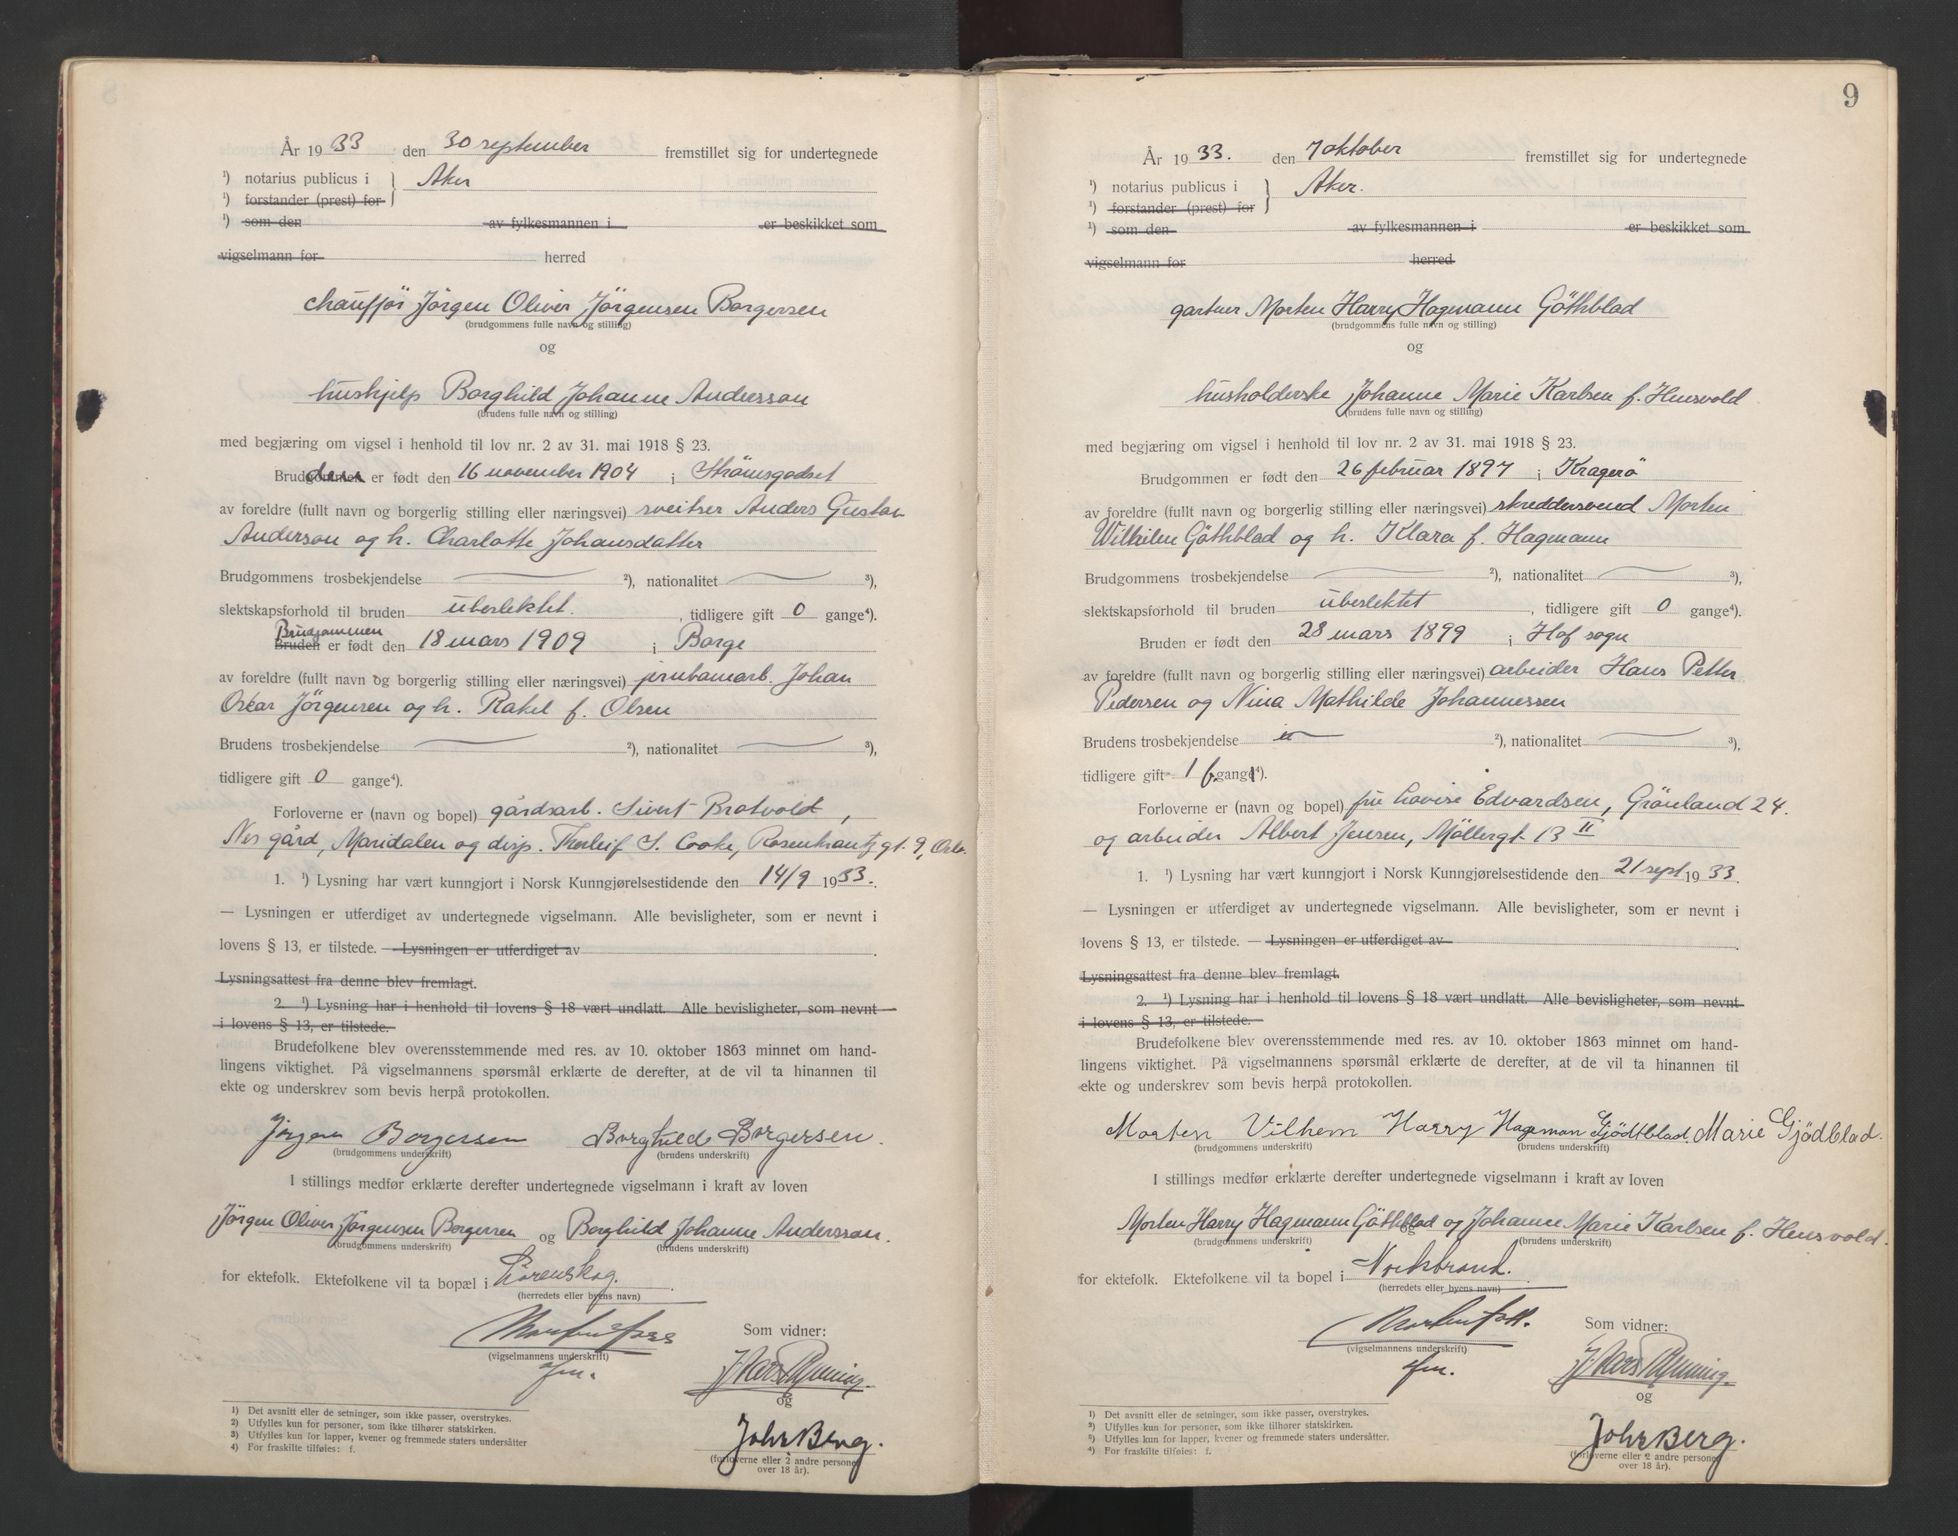 År 1933 den 30 september fremstillet sig for undertegnede
¹) notarius publicus i } Aker
¹) forstander (prest) for
¹) som den av fylkesmannen i er beskikket som
vigselmann for herred
chauffør Jörgen Oliver Jörgensen Borgersen
(brudgommens fulle navn og stilling)
og
hushjelp Borghild Johanne Andersson
(brudens fulle navn og stilling)
med begjæring om vigsel i henhold til lov nr. 2 av 31. mai 1918 § 23.
Brudens er født den 16 november 1904 i Strömsgodset
av foreldre (fullt navn og borgerlig stilling eller næringsvei) sveitser Anders Gustav
Anderson og h. Charlotte Johansdatter
Brudgommens trosbekjendelse — ²), nationalitet — ³),
slektskapsforhold til bruden ubeslektet. , tidligere gift 0 gange⁴).
Brudgommen
Bruden er født den 18 mars 1909 i Borge
av foreldre (fullt navn og borgerlig stilling eller næringsvei) jernbanearb. Johan
Oskar Jörgensen og h. Rakel f. Olsen
Brudens trosbekjendelse — ²), nationalitet — ³),
tidligere gift 0 gange⁴).
Forloverne er (navn og bopel) gårdsarb. Sivert Bratvold,
Nes gård, Maridalen og disp. Thorleif S. Cooke, Rosenkrantzgt. 9, Oslo.
1. ¹) Lysning har vært kunngjort i Norsk Kunngjørelsestidende den 14/9 1933.
— Lysningen er utferdiget av undertegnede vigselmann. Alle bevisligheter, som er nevnt i
lovens § 13, er tilstede. — Lysningen er utferdiget av
Lysningsattest fra denne blev fremlagt.
2. ¹) Lysning har i henhold til lovens § 18 vært undlatt. Alle bevisligheter, som nevnt
i lovens § 13, er tilstede.
Brudefolkene blev overensstemmende med res. av 10. oktober 1863 minnet om hand-
lingens viktighet. På vigselmannens spørsmål erklærte de derefter, at de vil ta hinannen til
ekte og underskrev som bevis herpå protokollen.
Jörgen Borgersen Borghild Borgersen.
(brudgommens underskrift) (brudens underskrift)
I stillings medfør erklærte derefter undertegnede vigselmann i kraft av loven
Jörgen Oliver Jörgensen Borgersen og Borghild Johanne Andersson.
(brudgommens underskrift) (brudens underskrift)
for ektefolk. Ektefolkene vil ta bopæl i Lörenskog.
(herredets eller byens navn)
Som vidner:
(vigselmannens underskrift)
og
Joh. Berg.
(forloverne eller 2 andre personer
over 18 år).
1) Det avsnitt eller de setninger, som ikke passer, overstrykes.
2) Utfylles kun for personer, som ikke tilhører statskirken.
3) Utfylles kun for lapper, kvener og fremmede staters undersåtter
4) For fraskilte tilføies: f.
9
År 1933. den 7 oktober fremstillet sig for undertegnede
¹) notarius publicus i } Aker.
¹) forstander (prest) for
¹) som den av fylkesmannen i er beskikket som
vigselmann for herred
gartner Morten Harry Hagmann Göthblad
(brudgommens fulle navn og stilling)
og
husholderske Johanne Marie Karlsen f. Hensvold
(brudens fulle navn og stilling)
med begjæring om vigsel i henhold til lov nr. 2 av 31. mai 1918 § 23.
Brudgommen er født den 26 februar 1897 i Kragerö
av foreldre (fullt navn og borgerlig stilling eller næringsvei) skreddersvend Morten
Wilhelm Göthblad og h. Klara f. Hagmann
Brudgommens trosbekjendelse — ²), nationalitet — ³),
slektskapsforhold til bruden ubeslektet , tidligere gift 0 gange⁴).
Bruden er født den 28 mars 1899 i Hof sogn
av foreldre (fullt navn og borgerlig stilling eller næringsvei) arbeider Hans Petter
Pedersen og Nina Mathilde Johannessen
Brudens trosbekjendelse — ²), nationalitet — ³),
tidligere gift 1 f. gang⁴).
Forloverne er (navn og bopel) fru Lovise Edvardsen, Grönland 24.
og arbeider Albert Jensen, Möllergt. 13 II
1. ¹) Lysning har vært kunngjort i Norsk Kunngjørelsestidende den 21 sept 1933.
— Lysningen er utferdiget av undertegnede vigselmann. Alle bevisligheter, som er nevnt i
lovens § 13, er tilstede. — Lysningen er utferdiget av
Lysningsattest fra denne blev fremlagt.
2. ¹) Lysning har i henhold til lovens § 18 vært undlatt. Alle bevisligheter, som nevnt
i lovens § 13, er tilstede.
Brudefolkene blev overensstemmende med res. av 10. oktober 1863 minnet om hand-
lingens viktighet. På vigselmannens spørsmål erklærte de derefter, at de vil ta hinannen til
ekte og underskrev som bevis herpå protokollen.
Morten Vilhem Harry Hageman Gjödtblad. Marie Gjödblad.
(brudgommens underskrift) (brudens underskrift)
I stillings medfør erklærte derefter undertegnede vigselmann i kraft av loven
Morten Harry Hagmann Göthblad og Johanne Marie Karlsen f. Hensvold.
(brudgommens underskrift) (brudens underskrift)
for ektefolk. Ektefolkene vil ta bopel i Nordstrand.
(herredets eller byens navn)
Som vidner:
(vigselmannens underskrift)
og
Joh. Berg.
(forloverne eller 2 andre personer
over 18 år).
1) Det avsnitt eller de setninger, som ikke passer, overstrykes.
2) Utfylles kun for personer, som ikke tilhører statskirken.
3) Utfylles kun for lapper, kvener og fremmede staters undersåtter
4) For fraskilte tilføies: f.